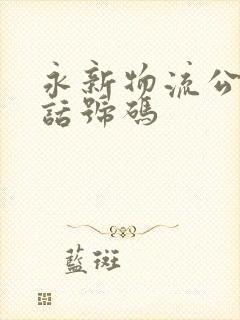 永新物流公
話號碼
藍斑